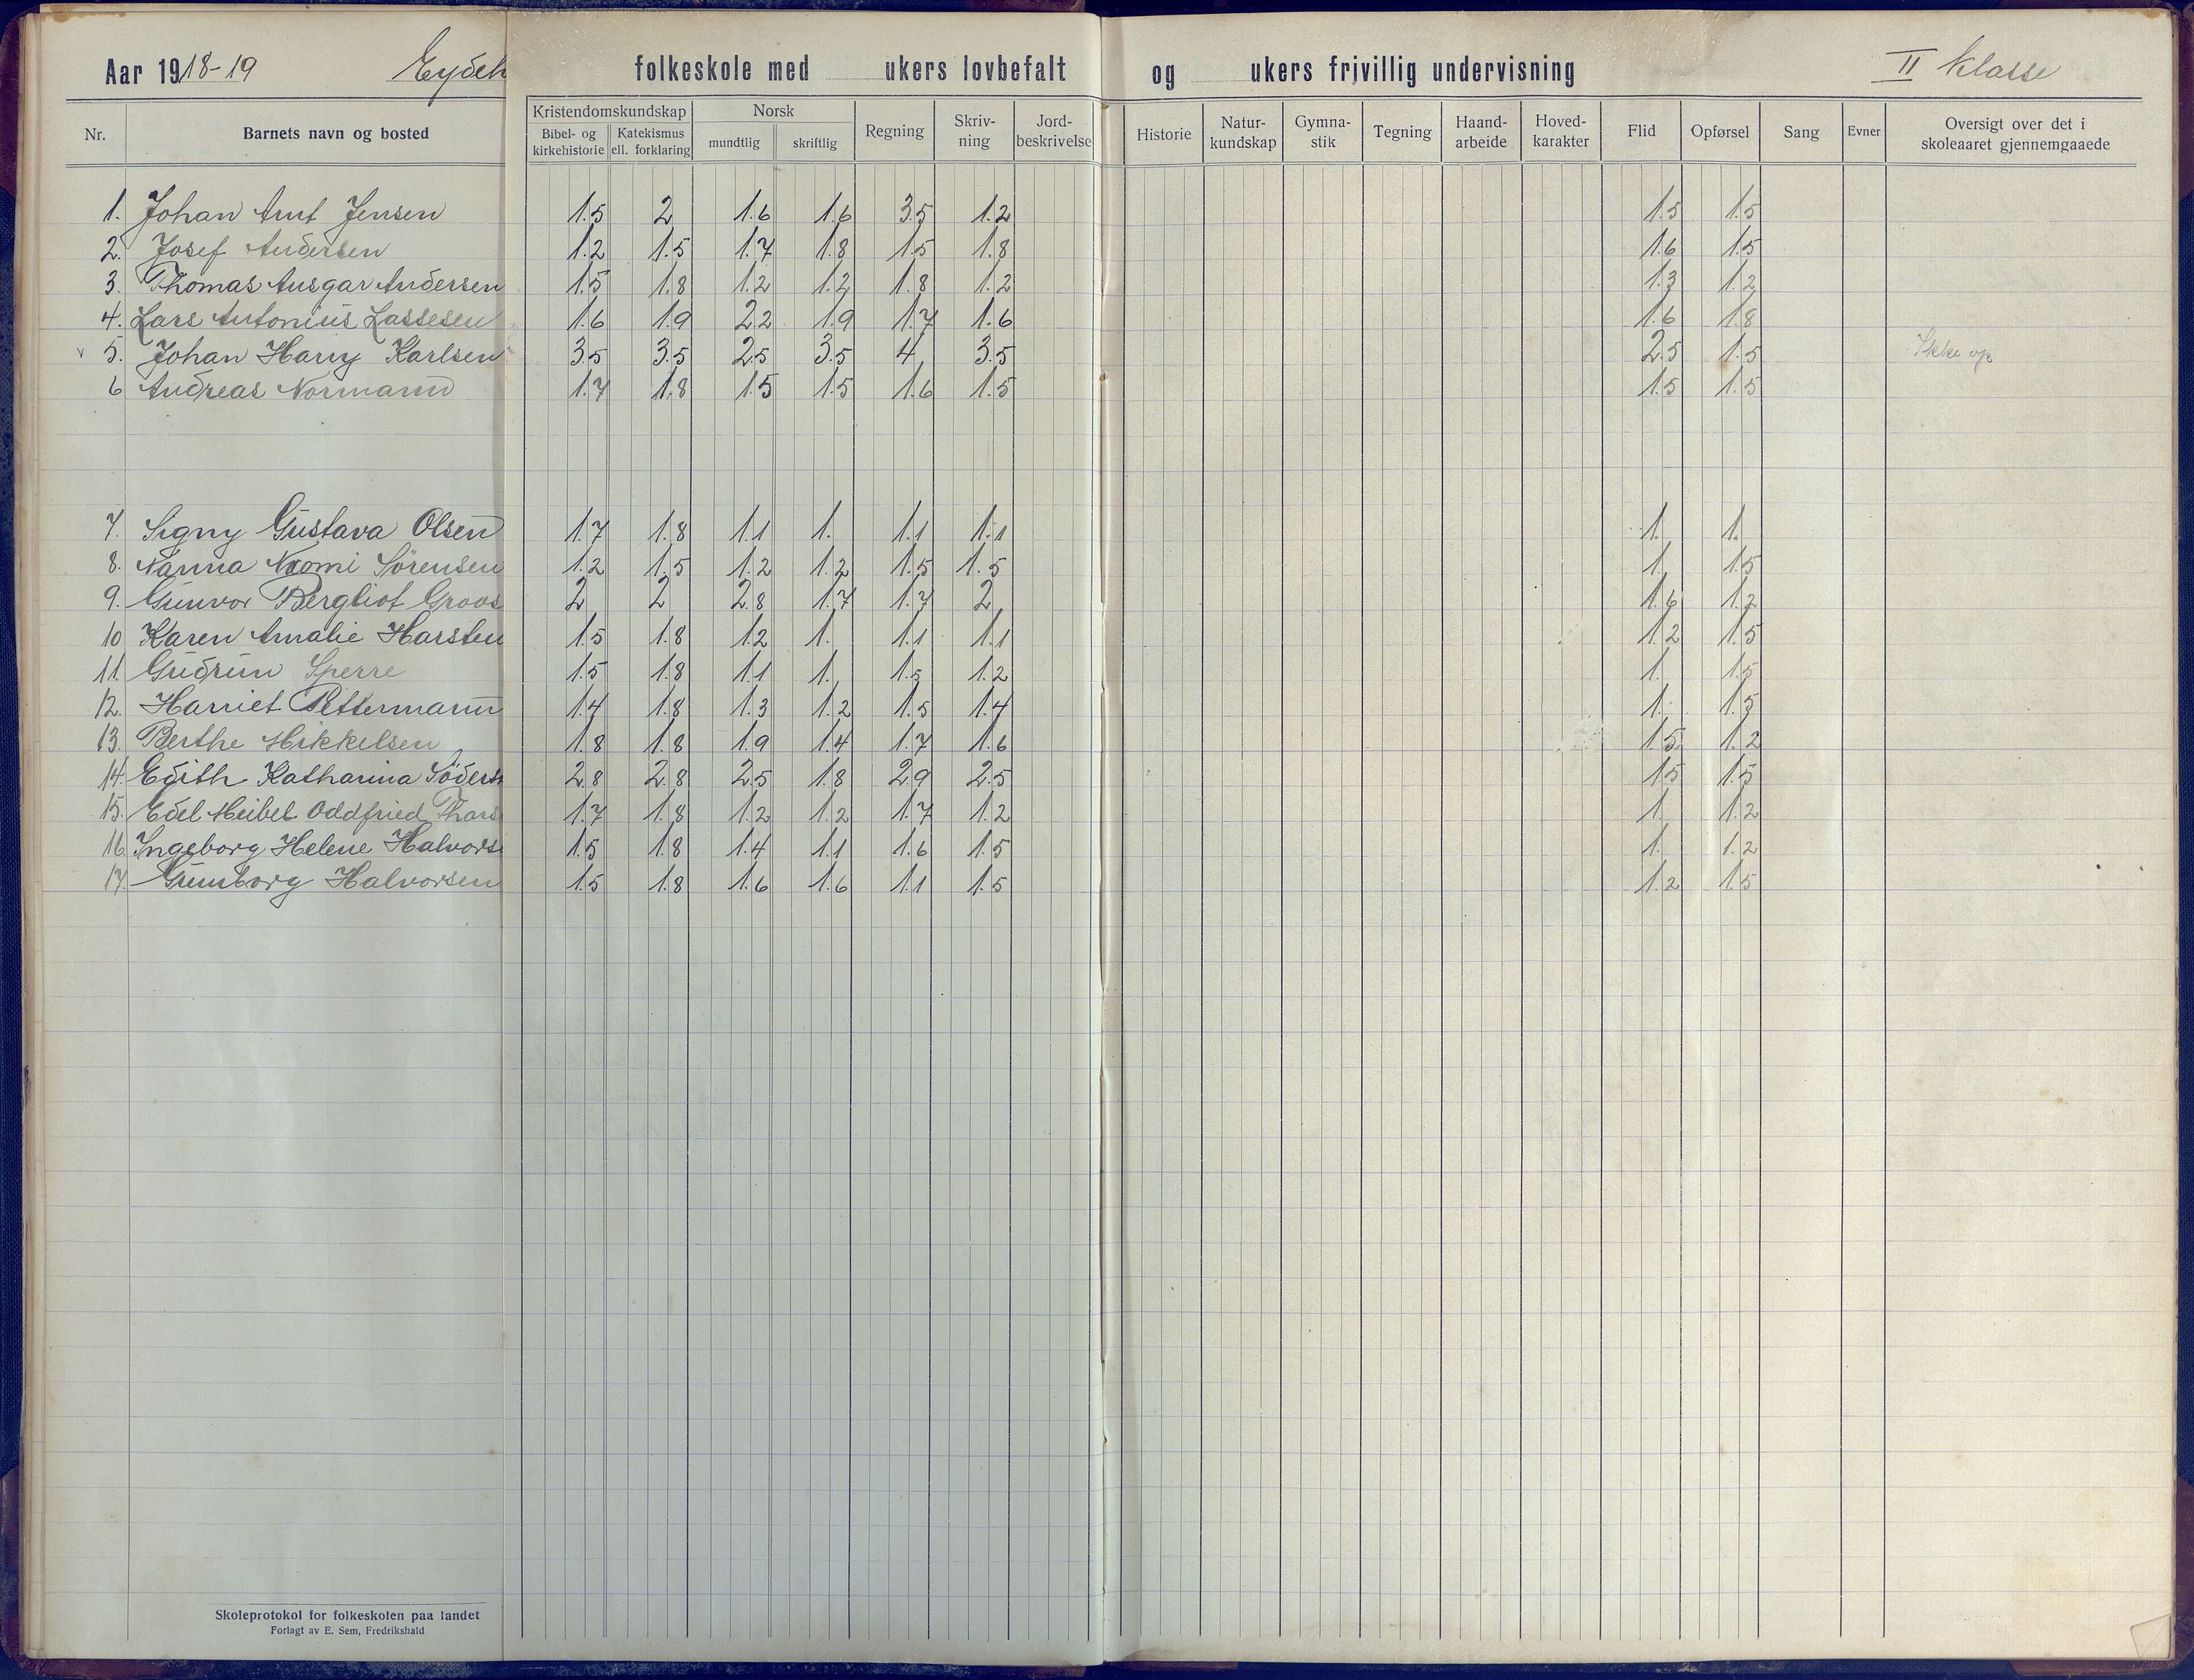 Aar 1918-19 Eydeh folkeskole med ukers lovbefalt og ukers frivillig undervisning II klasse
Nr. Barnets navn og bosted Kristendomskundskap Bibel- og kirkehistorie Katekismus ell. forklaring Norsk mundtlig skriftlig Regning Skriv-ning Jord-beskrivelse Historie Natur-kundskap Gymna-stik Tegning Haand-arbeide Hoved-karakter Flid Opførsel Sang Evner Oversigt over det i skoleaaret gjennemgaaede
1. Johan Arnt Jensen 1.5 2 1.6 1.6 3.5 1.2 1.5 1.5
2. Josef Andersen 1.2 1.5 1.7 1.8 1.5 1.8 1.6 1.5
3. Thomas Ansgar Andersen 1.5 1.8 1.2 1.2 1.8 1.2 1.3 1.2
4. Lars Antonius Lassesen 1.6 1.9 2.2 1.9 1.7 1.6 1.6 1.8
v 5. Johan Harry Karlsen 3.5 3.5 2.5 3.5 4 3.5 2.5 1.5 Ikke op
6 Andreas Normann 1.7 1.8 1.5 1.5 1.6 1.5 1.5 1.5
7. Signy Gustava Olsen 1.7 1.8 1.1 1. 1.1 1.1 1. 1.
8. Nanna Naomi Sörensen 1.2 1.5 1.2 1.2 1.5 1.5 1. 1.5
9. Gunvor Bergliot Groos 2 2 2.8 1.7 1.7 2 1.6 1.2
10 Karen Amalie Harsten 1.5 1.8 1.2 1. 1.1 1.1 1.2 1.5
11. Gudrun Sperre 1.5 1.8 1.1 1. 1.5 1.2 1. 1.5
12. Harriet Pettermann 1.4 1.8 1.3 1.2 1.5 1.4 1. 1.5
13. Berthe Mikkelsen 1.8 1.8 1.9 1.4 1.7 1.6 1.5 1.2
14. Edith Katharina Söders 2.8 2.8 2.5 1.8 2.9 2.5 1.5 1.5
15. Edel Meibel Oddfried Thars 1.7 1.8 1.2 1.2 1.7 1.2 1 1.2
16. Ingeborg Helene Halvors 1.5 1.8 1.4 1.1 1.6 1.5 1. 1.2
17. Gunborg Halvorsen 1.5 1.8 1.6 1.6 1.1 1.5 1.2 1.5
Skoleprotokol for folkeskolen paa landet
Forlagt av E. Sem, Fredrikshald